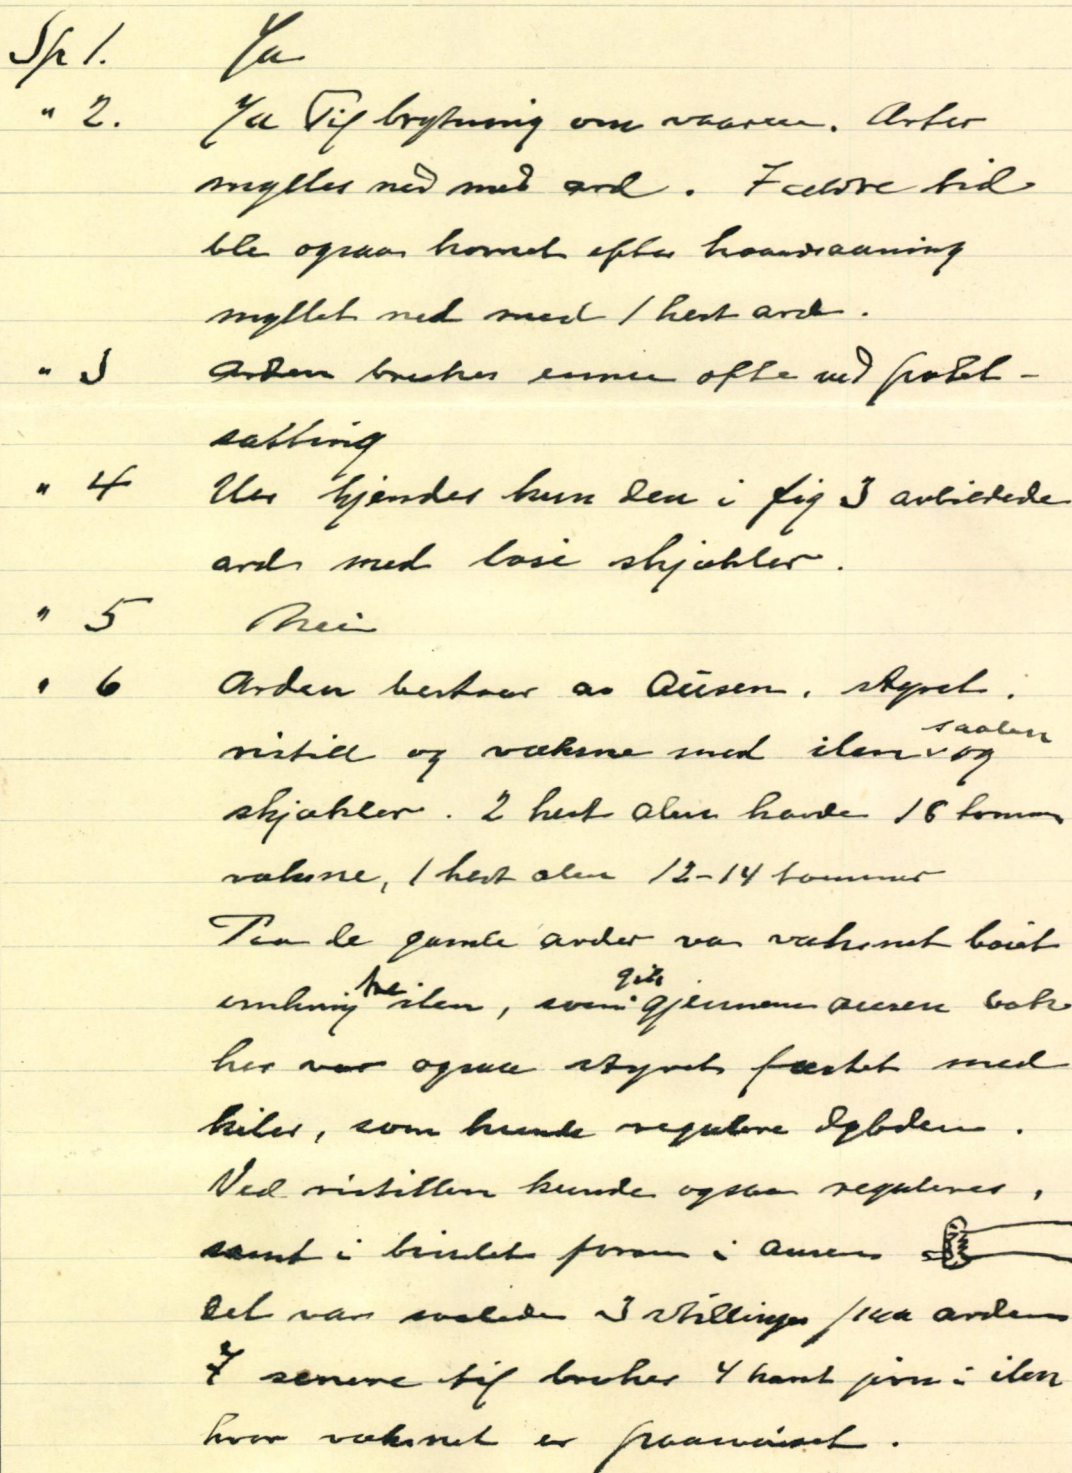 Sp 1. Ja
" 2. Ja Til brytning om vaaren. Erter
mylles ned med ard. I eldre tid
ble ogsaa kornet efter haandsaaning
myllet ned med 1 hest ard.
" 3 Arden brukes ennu ofte ved potet-
setting
" 4 Her kjendes kun den i fig 3 avbildede
ard med løse skjækler.
" 5 Nei
" 6 Arden bestaar av Aúsen, styret,
ristill og væksne med ilen saalen og
skjækler. 2 hest alen havde 16 tommer
væksne, 1 hest alen 12-14 tommer
Paa de gamle arder var væksnet bøiet
omkring tre ilen, som gik gjennem ausen bak
her var ogsaa styret festet med
kiler, som kunde regulere dybden.
Ved ristillen kunde ogsaa reguleres,
samt i bindet foran i ausen
Det var saaledes 3 stillinger paa arden
I senere tid brukes 4 kant jern i ilen
hvor væksnet er paasveiset.